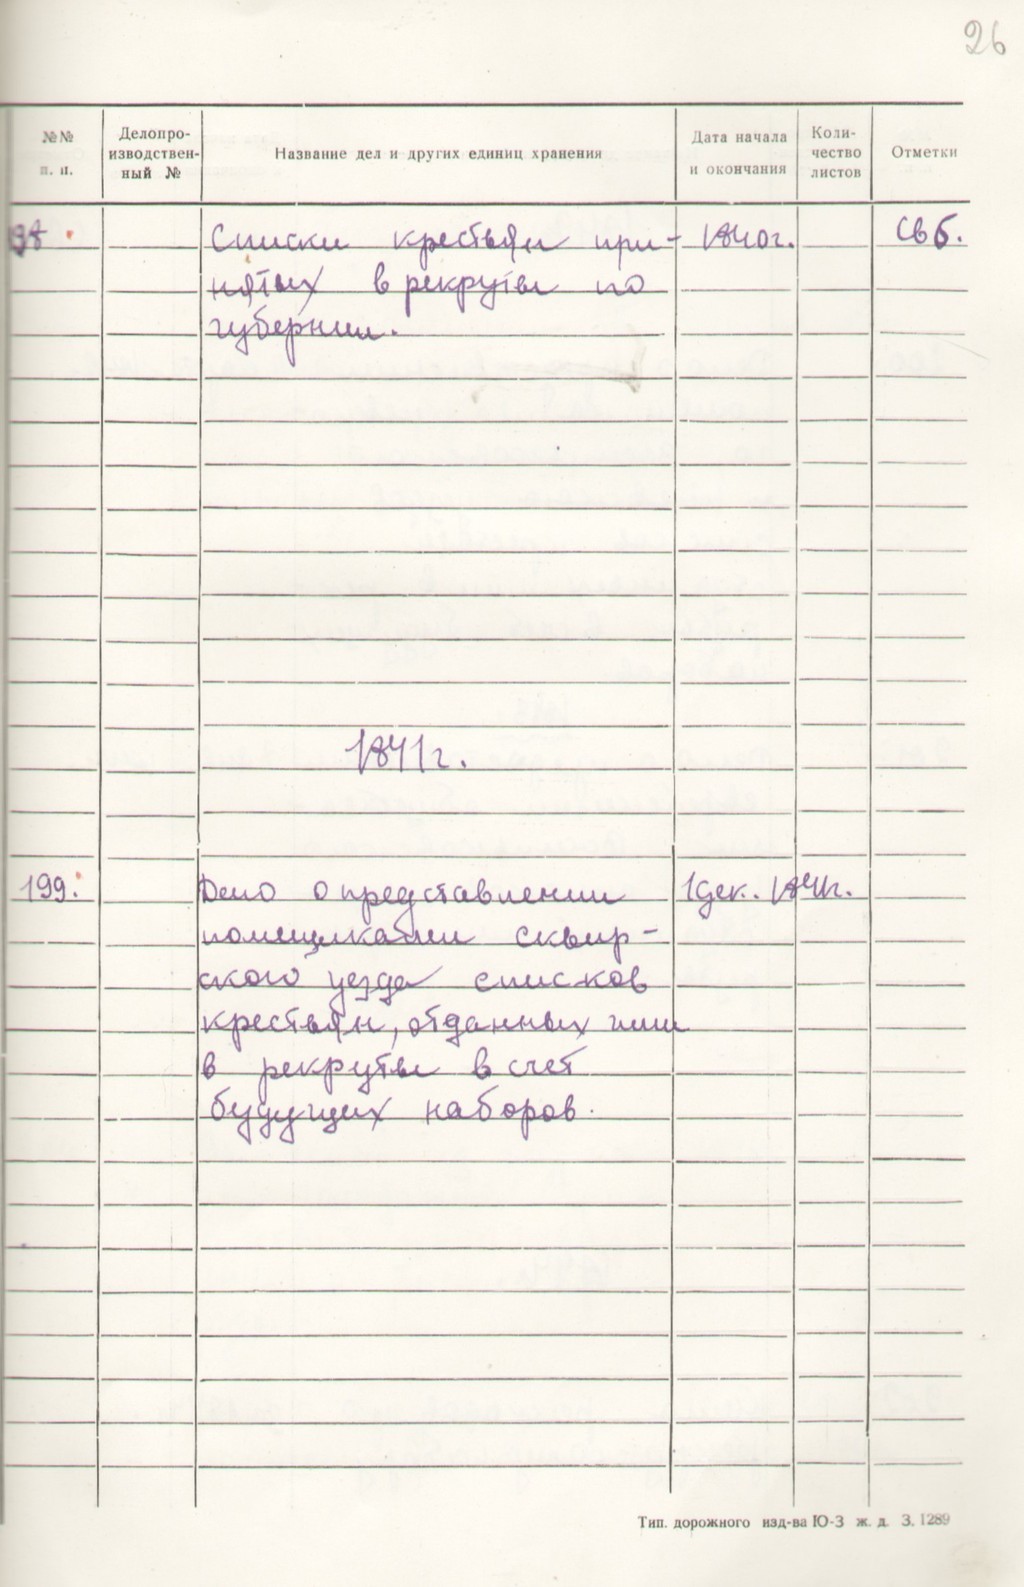 26
№№ п. п.
Делопро-
изводствен-
ный №
Название дел и других единиц хранения
Дата начала
и окончания
Коли-
чество
листов
Отметки
Списки крестьян при- 1840г. Св 6.
нятых в рекруты по
губернии.
1841г.
199. Дело о представлении 1 дек. 1841г.
помещиками сквир-
ского уезда списков
крестьян, отданных ими
в рекруты в счет
будущих наборов.
Тип. дорожного изд-ва Ю-З ж. д. З. 1289